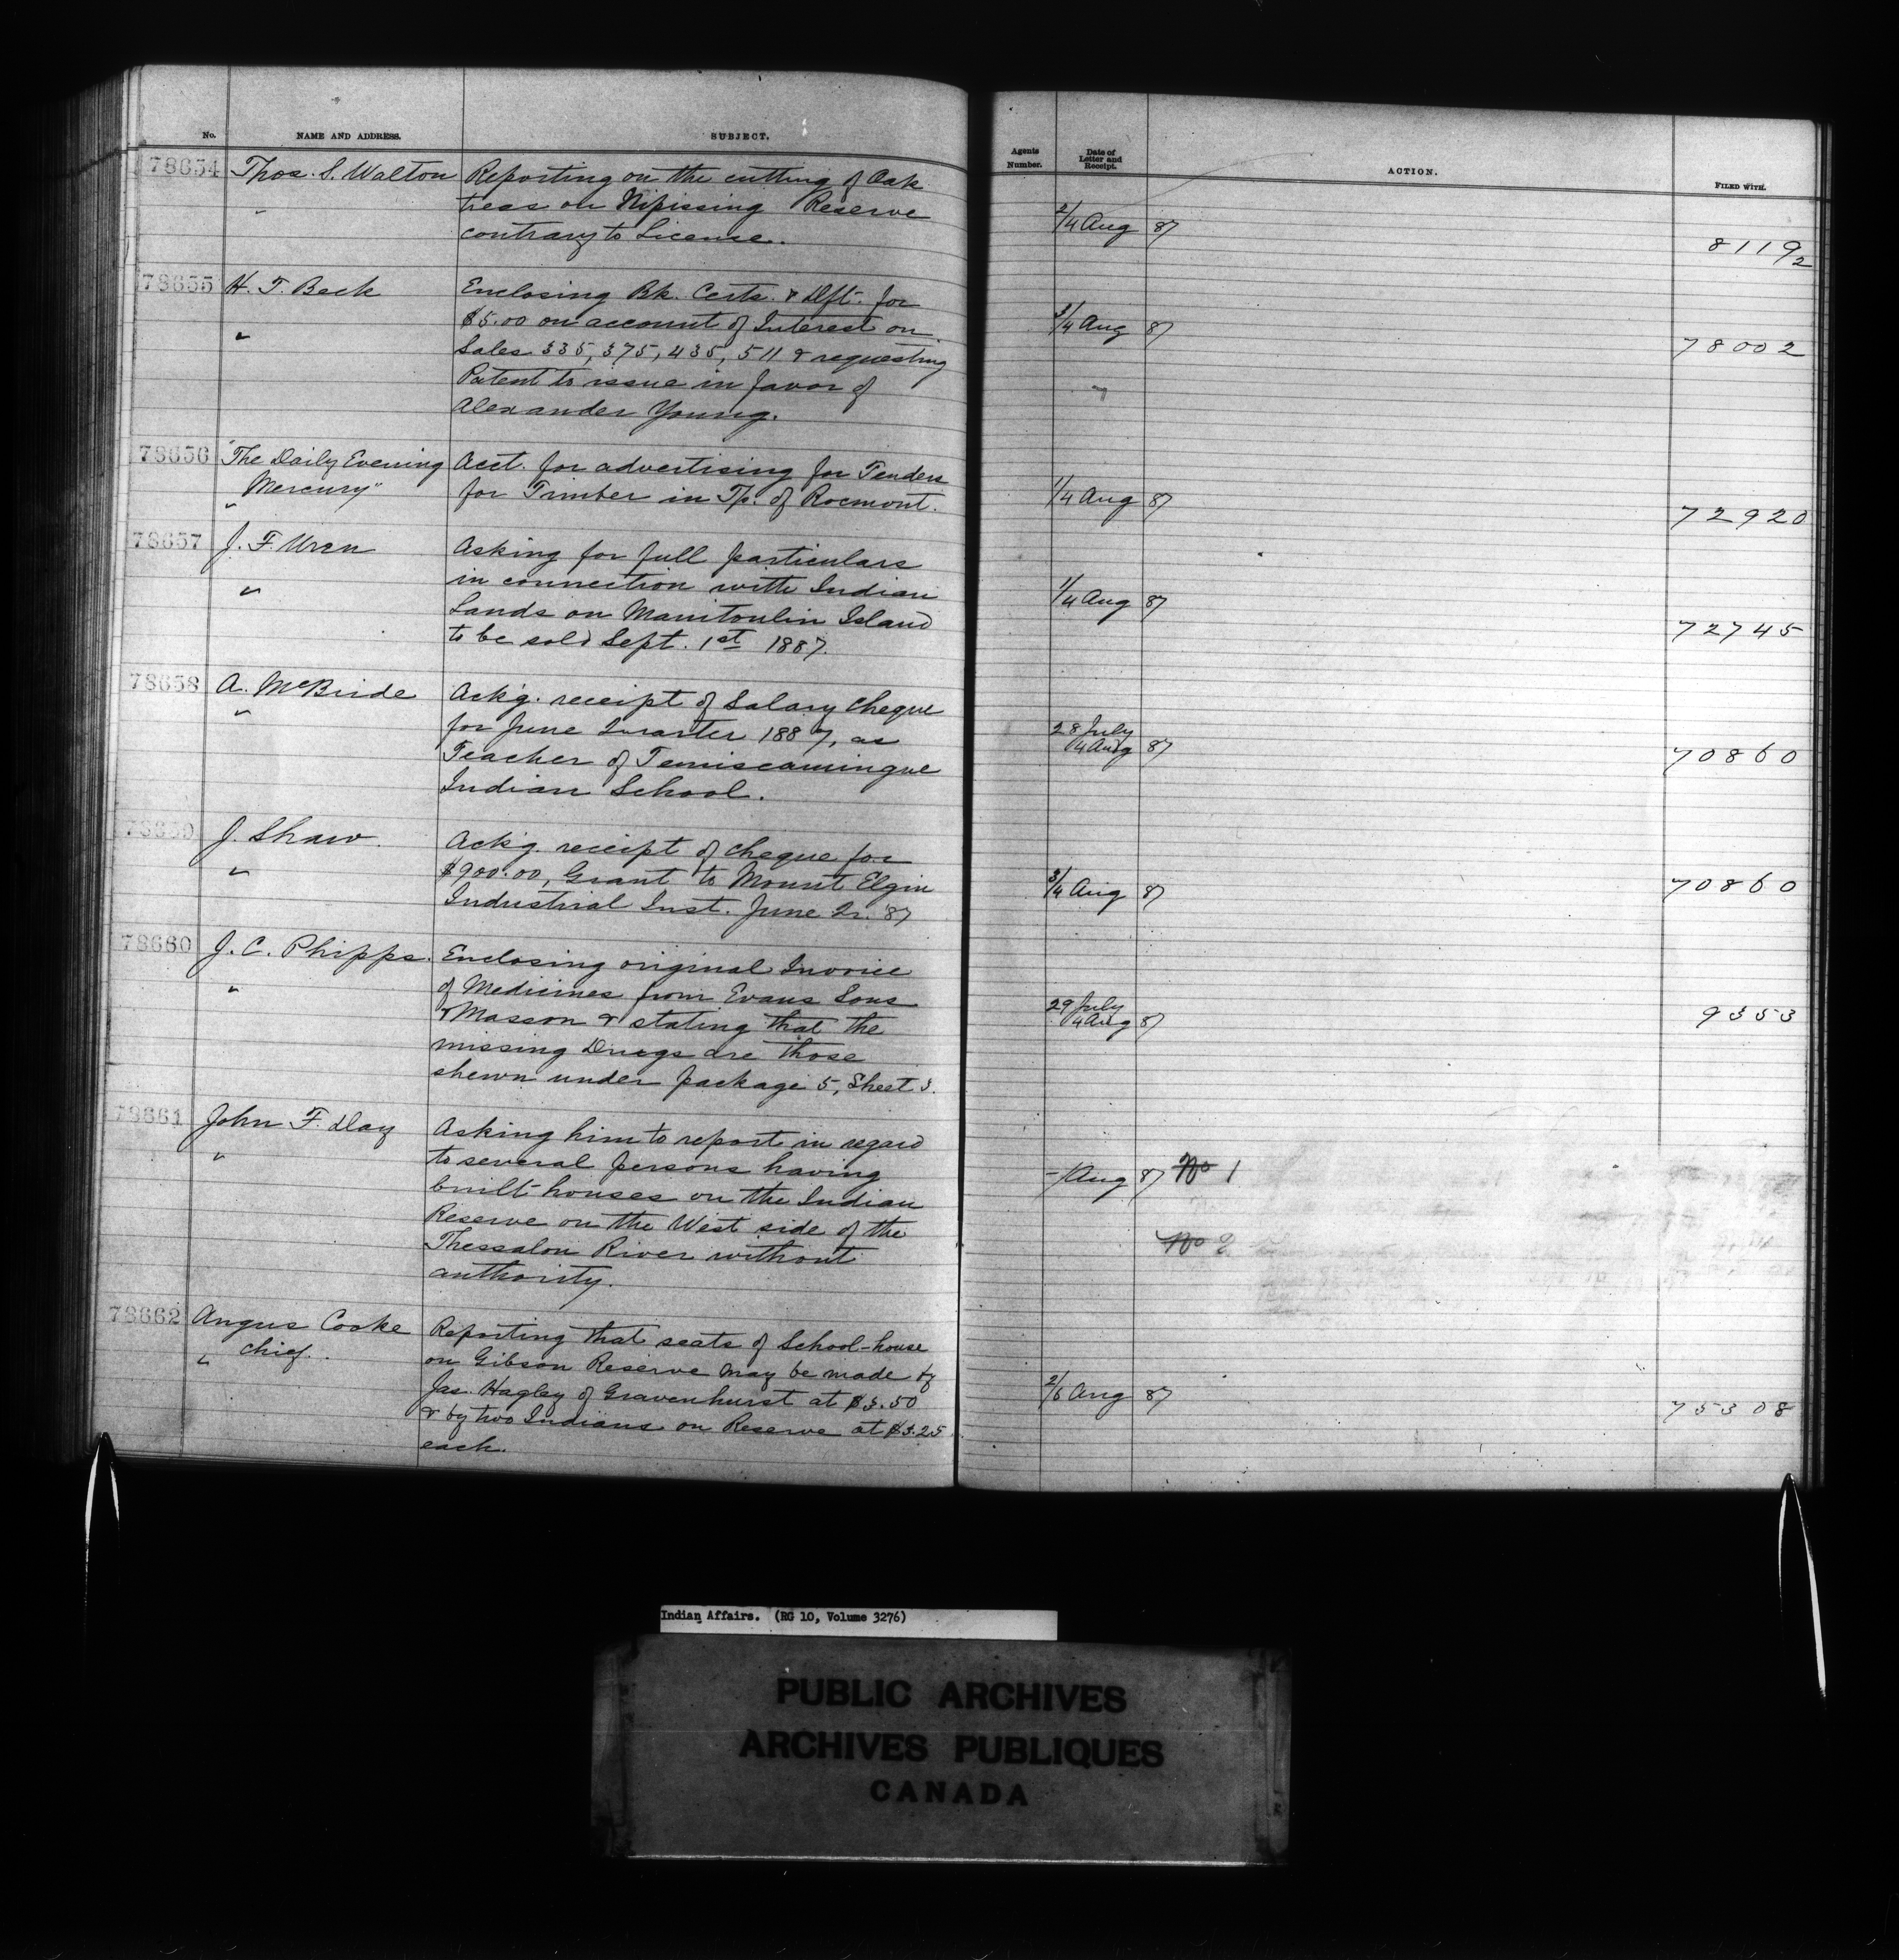 No. NAME AND ADDRESS. SUBJECT.
78654 Thos. S. Walton Reporting on the cutting of Oak
" trees on Nipissing Reserve
contrary to License.
78655 H. T. Beck Enclosing Bk. Certs. & Dft. for
$5.00 on account of Interest on
" Sales 335, 375, 435, 511 & requesting
Patent to issue in favor of
Alexander Young.
78656 "The Daily Evening Acct. for advertising for Tenders
Mercury" for Timber in Tp. of Rocmont.
"
78657 J. F. Wren Asking for full particulars
" in connection with Indian
Lands on Manitoulin Island
to be sold Sept. 1st 1887.
78658 A. McBride Ack'g. receipt of Salary Cheque
" for June Quarter 1887, as
Teacher of Temiscamingue
Indian School.
78659 J. Shaw. Ack'g. receipt of cheque for
" $900.00, Grant to Mount Elgin
Industrial Inst. June Qr. '87
78660 J. C. Phipps. Enclosing original Invoice
" of Medicines from Evans Sons
& Masson & stating that the
missing Drugs are those
shewn under package 5, Sheet 3.
78661 John F. Day Asking him to report in regard
" to several persons having
built houses on the Indian
Reserve on the West side of the
Thessalon River without
authority.
78662 Angus Cooke Reporting that seats of School-house
" Chief. on Gibson Reserve may be made by
Jas. Hagley of Gravenhurst at $3.50
& by two Indians on Reserve at $3.25
each.
Agents Number. Date of Letter and Receipt. ACTION. FILED WITH.
2/4 Aug 87 8119 2
3/4 Aug 87 78002
1/4 Aug 87 72920
1/4 Aug 87 72745
28 July
/4 Aug 87 70860
3/4 Aug 87 70860
29 July
/4 Aug 87 9353
-/ Aug 87 No 1
No 2
2/6 Aug 87 75308
Indian Affairs. (RG 10, Volume 3276)
PUBLIC ARCHIVES
ARCHIVES PUBLIQUES
CANADA